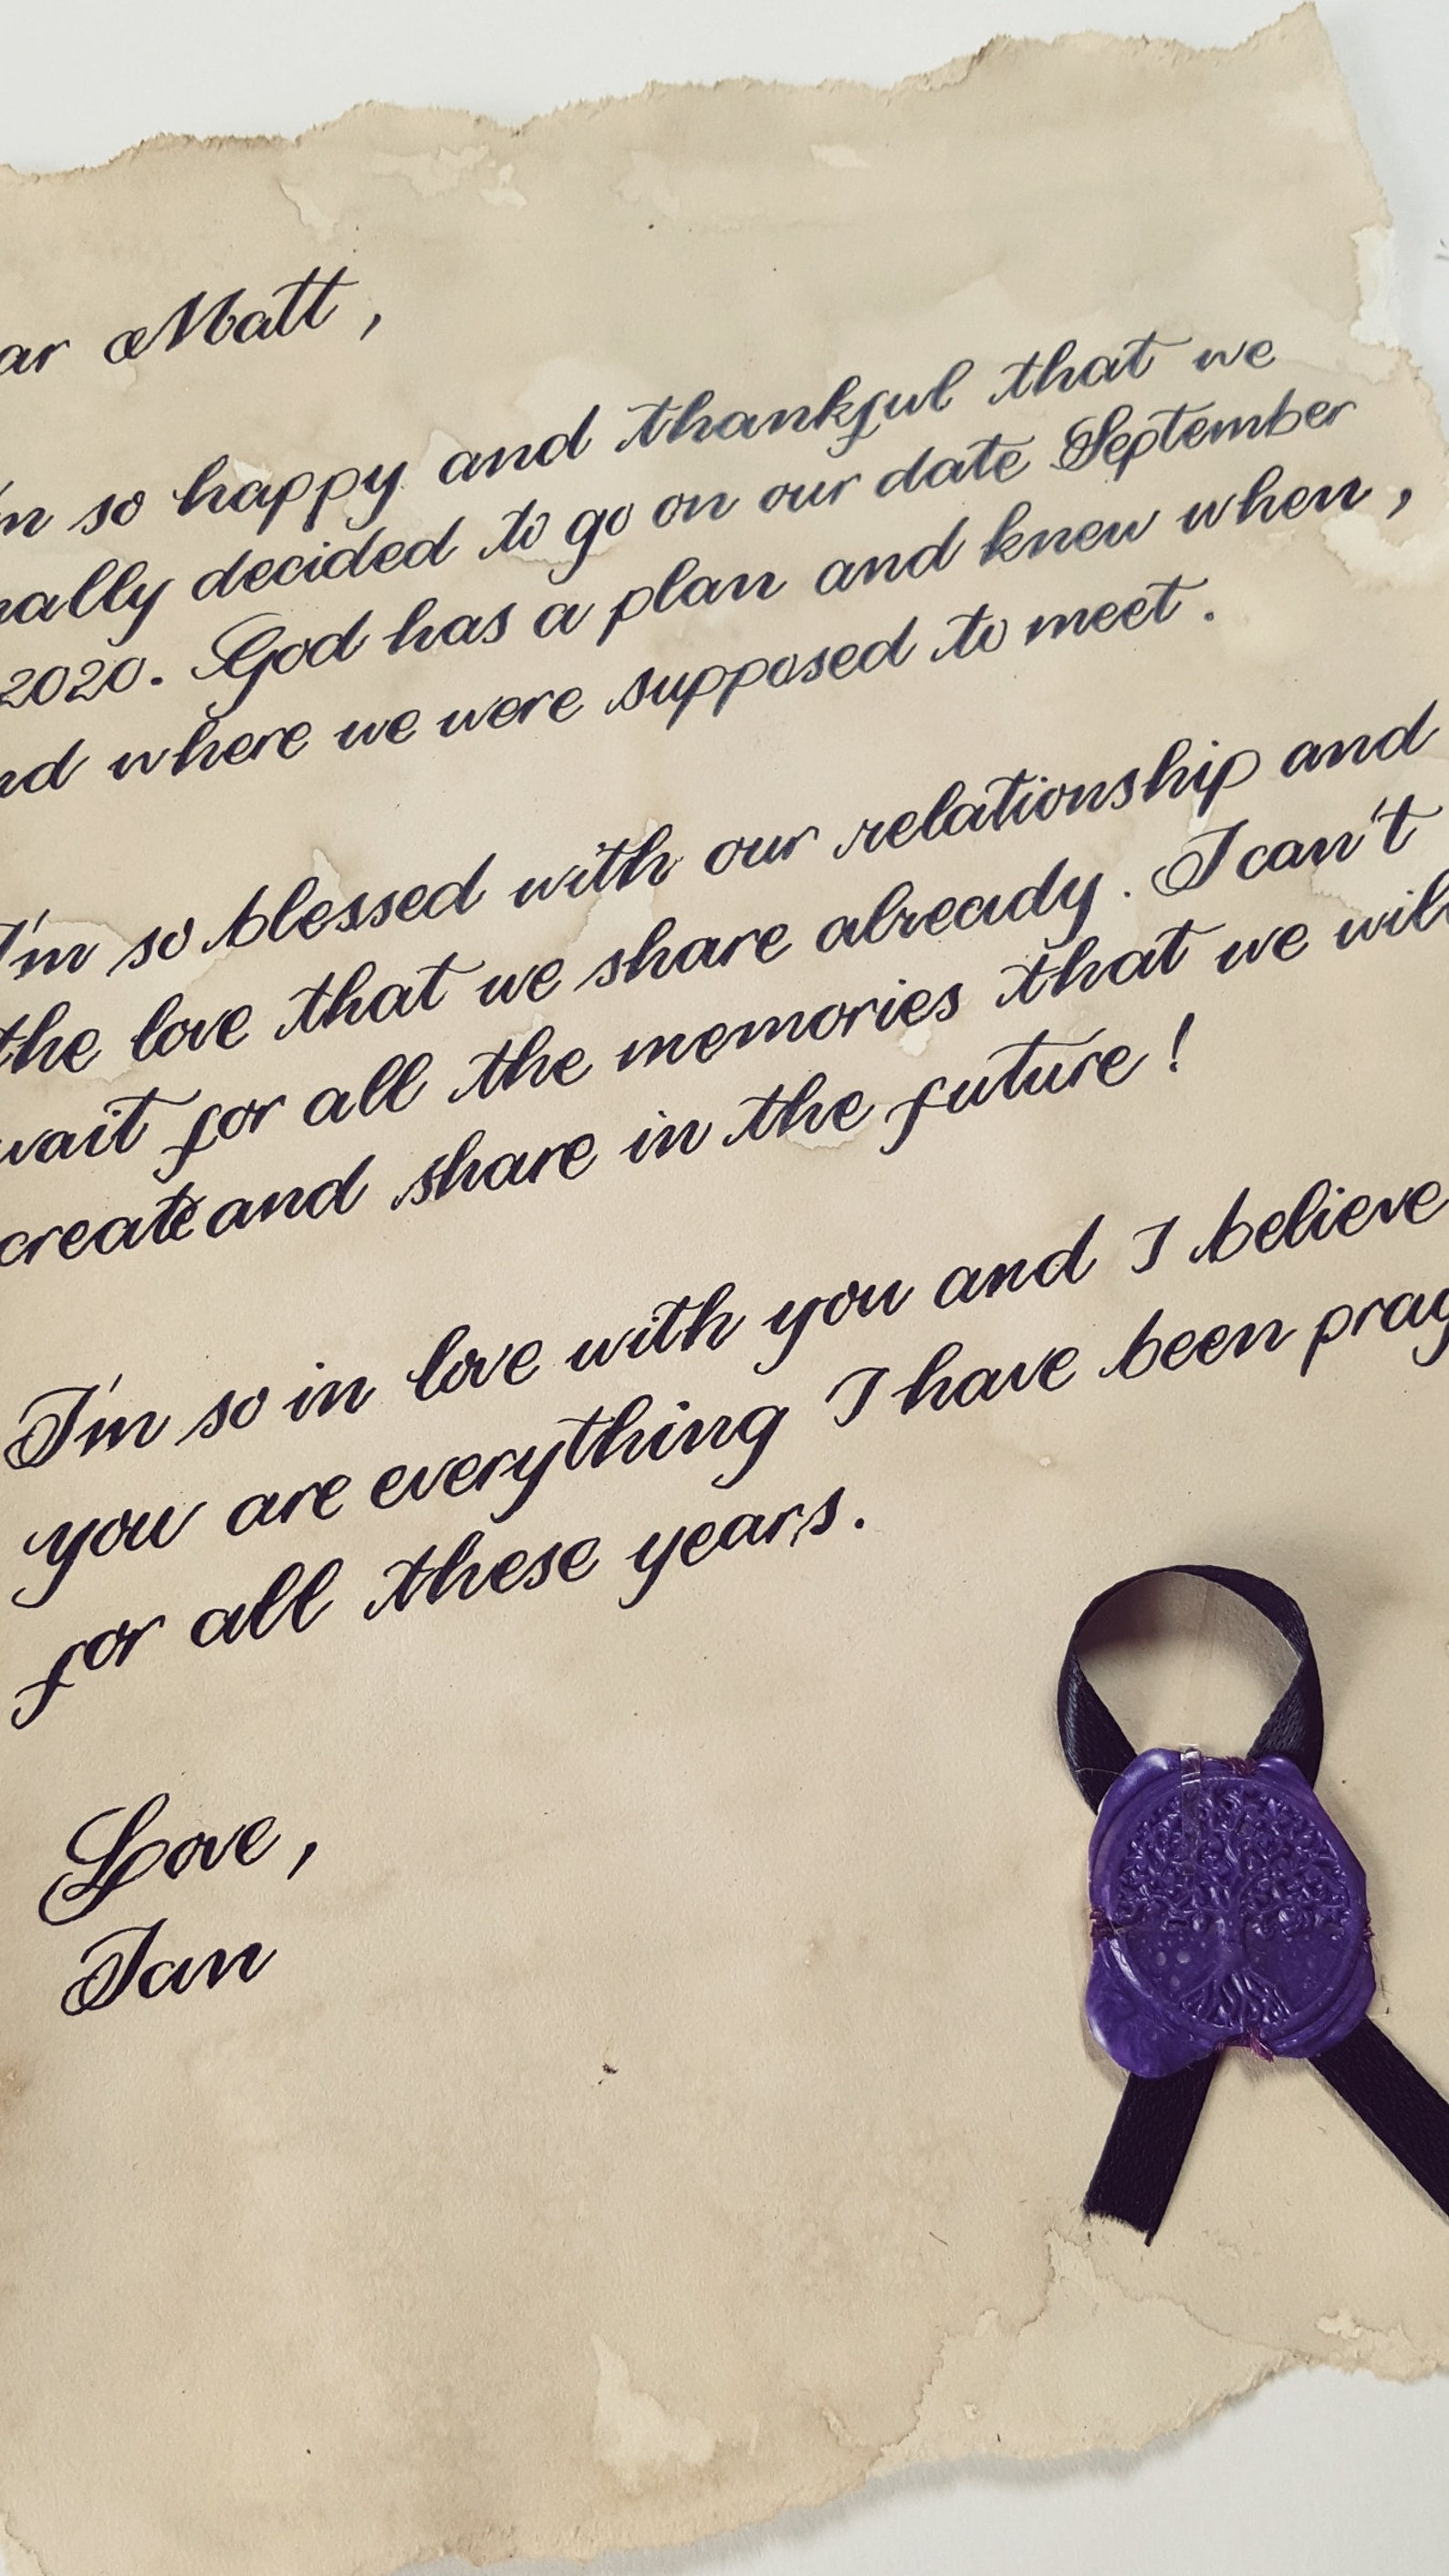 ar Matt,
I'm so happy and thankful that we
nally decided to go on our date September
2020. God has a plan and knew when,
nd where we were supposed to meet.
I'm so blessed with our relationship and
the love that we share already. I can't
wait for all the memories that we will
create and share in the future!
I'm so in love with you and I believe
you are everything I have been pray
for all these years.
Love,
Ian